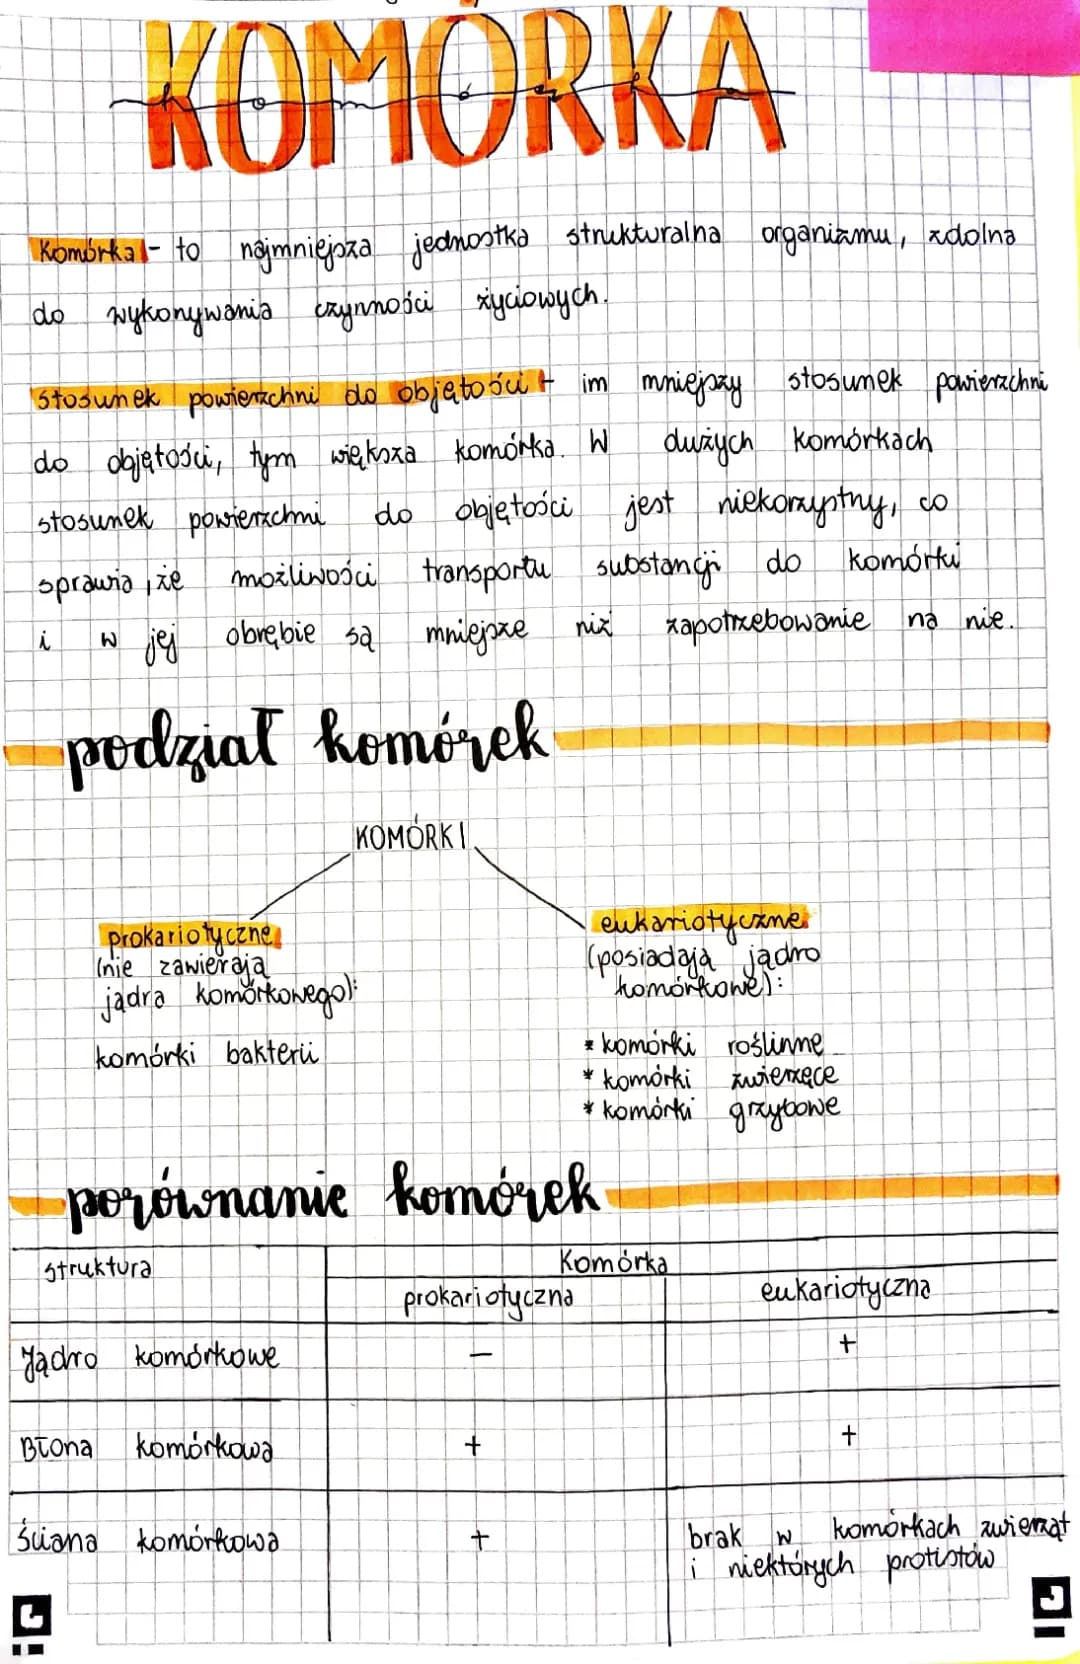 KOMÓRKA
komórka
Komórka - to najmniejsza jednostka strukturalna organizmu, zdolna
do wykonywania czynności życiowych.
Stosunek powierzchni do objętości - im mniejszy stosunek powierzchni
do objętości, tym większa komórka. W dużych komórkach
stosunek powierzchni do objętości jest niekorzystny, co
sprawia, że możliwości transportu substancji do komórki
i w jej obrębie są mniejsze niż zapotrzebowanie na nie.
podział komórek
KOMÓRKI
prokariotyczne
(nie zawierają
jądra komórkowego):
komórki bakterii
eukariotyczne
(posiadają jądro
komórkowe):
* komórki roślinne
* komórki zwierzęce
* komórki grzybowe
porównanie komórek
struktura
Komórka
prokariotyczna eukariotyczna
Jądro komórkowe - +
Błona komórkowa + +
Ściana komórkowa + brak w komórkach zwierząt
i niektórych protistów